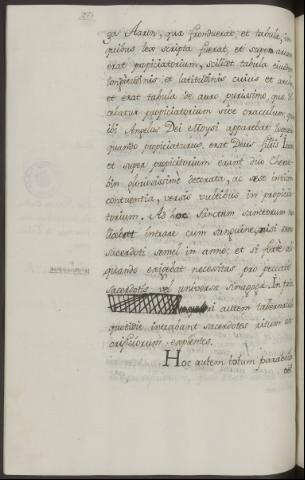 ga Aaron, quæ fronduerat, et tabulæ, in
quibus lex scripta fuerat, et super arcam
erat propiciatorium, scilicet tabula eiusdem
longitudinis, et latitudinis cuius et arca
et erat tabula de auro purissimo, quæ
propiciatorium sive oraculum,
ibi Angelus Dei Moysi apparebat
quando propiciaturus erat Deus filiis
et super propiciatorium erant duo Cheru-
bin gloriosissime decorata, ac sese invicem
contuentia, versis vultibus in propicia-
torium. Ad hoc Sanctum Sanctorum non
licebat intrare cum sanguine, nisi summo
sacerdoti semel in anno, et si forte ali-
quando exigebat necessitas pro peccato
sacerdotis vel universæ Sinagogæ. In
autem tabernaculo
quotidie intrabant sacerdotes ritum sa-
crificiorum explentes.
Hoc autem totum parabola
est